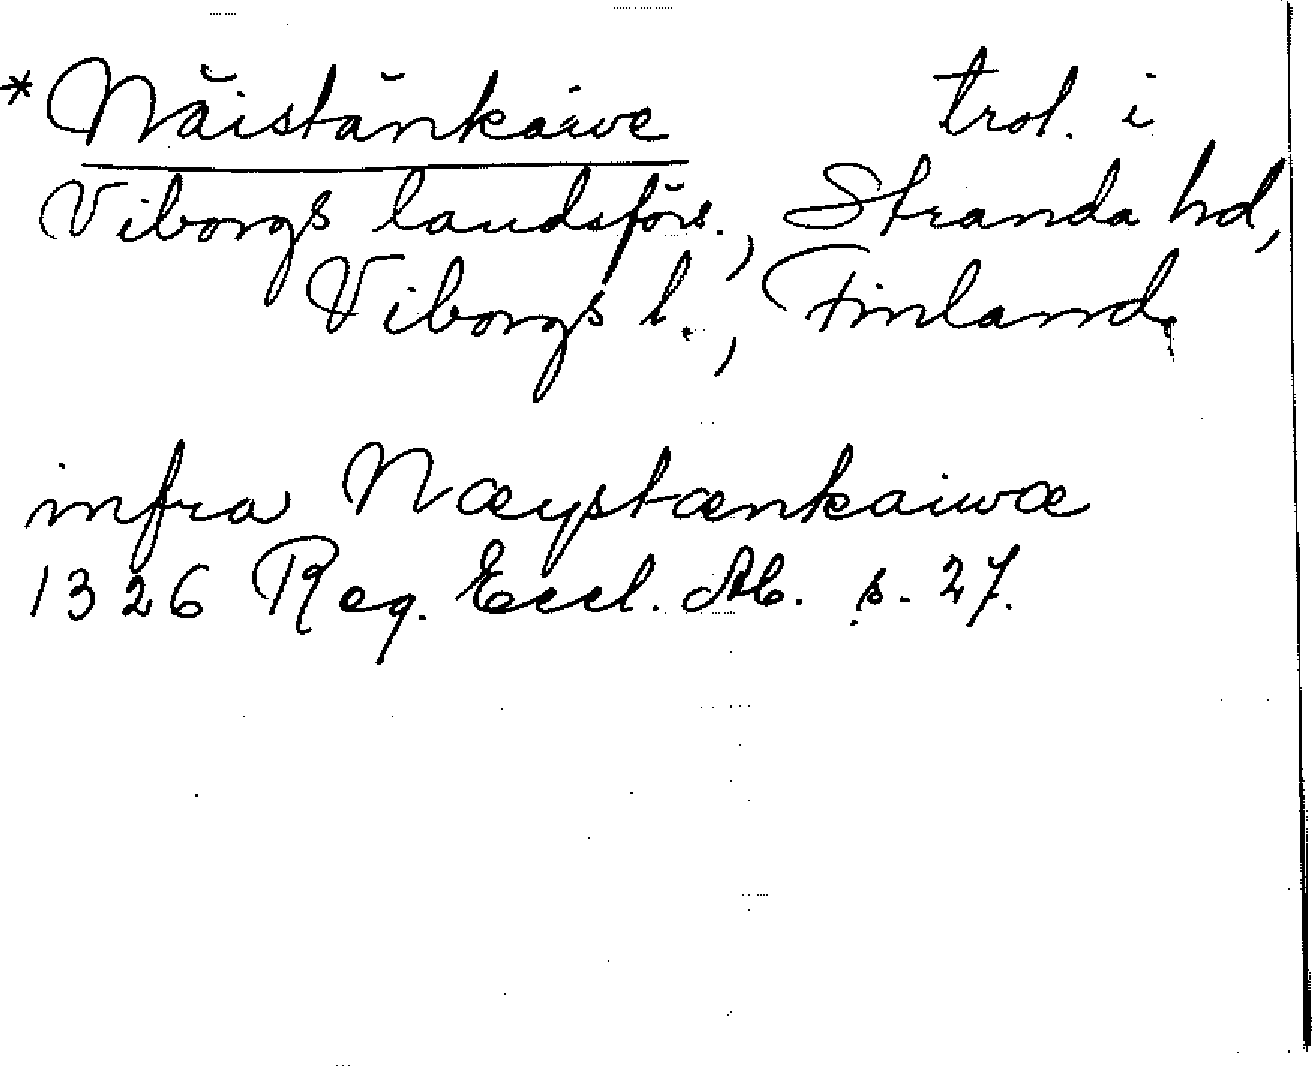 *Näistänkaive trol. i
Viborgs landsförs., Stranda hd,
Viborgs l., Finland.
infra Næystænkaiwæ
1326 Reg. Eccl. Ab. s. 27.